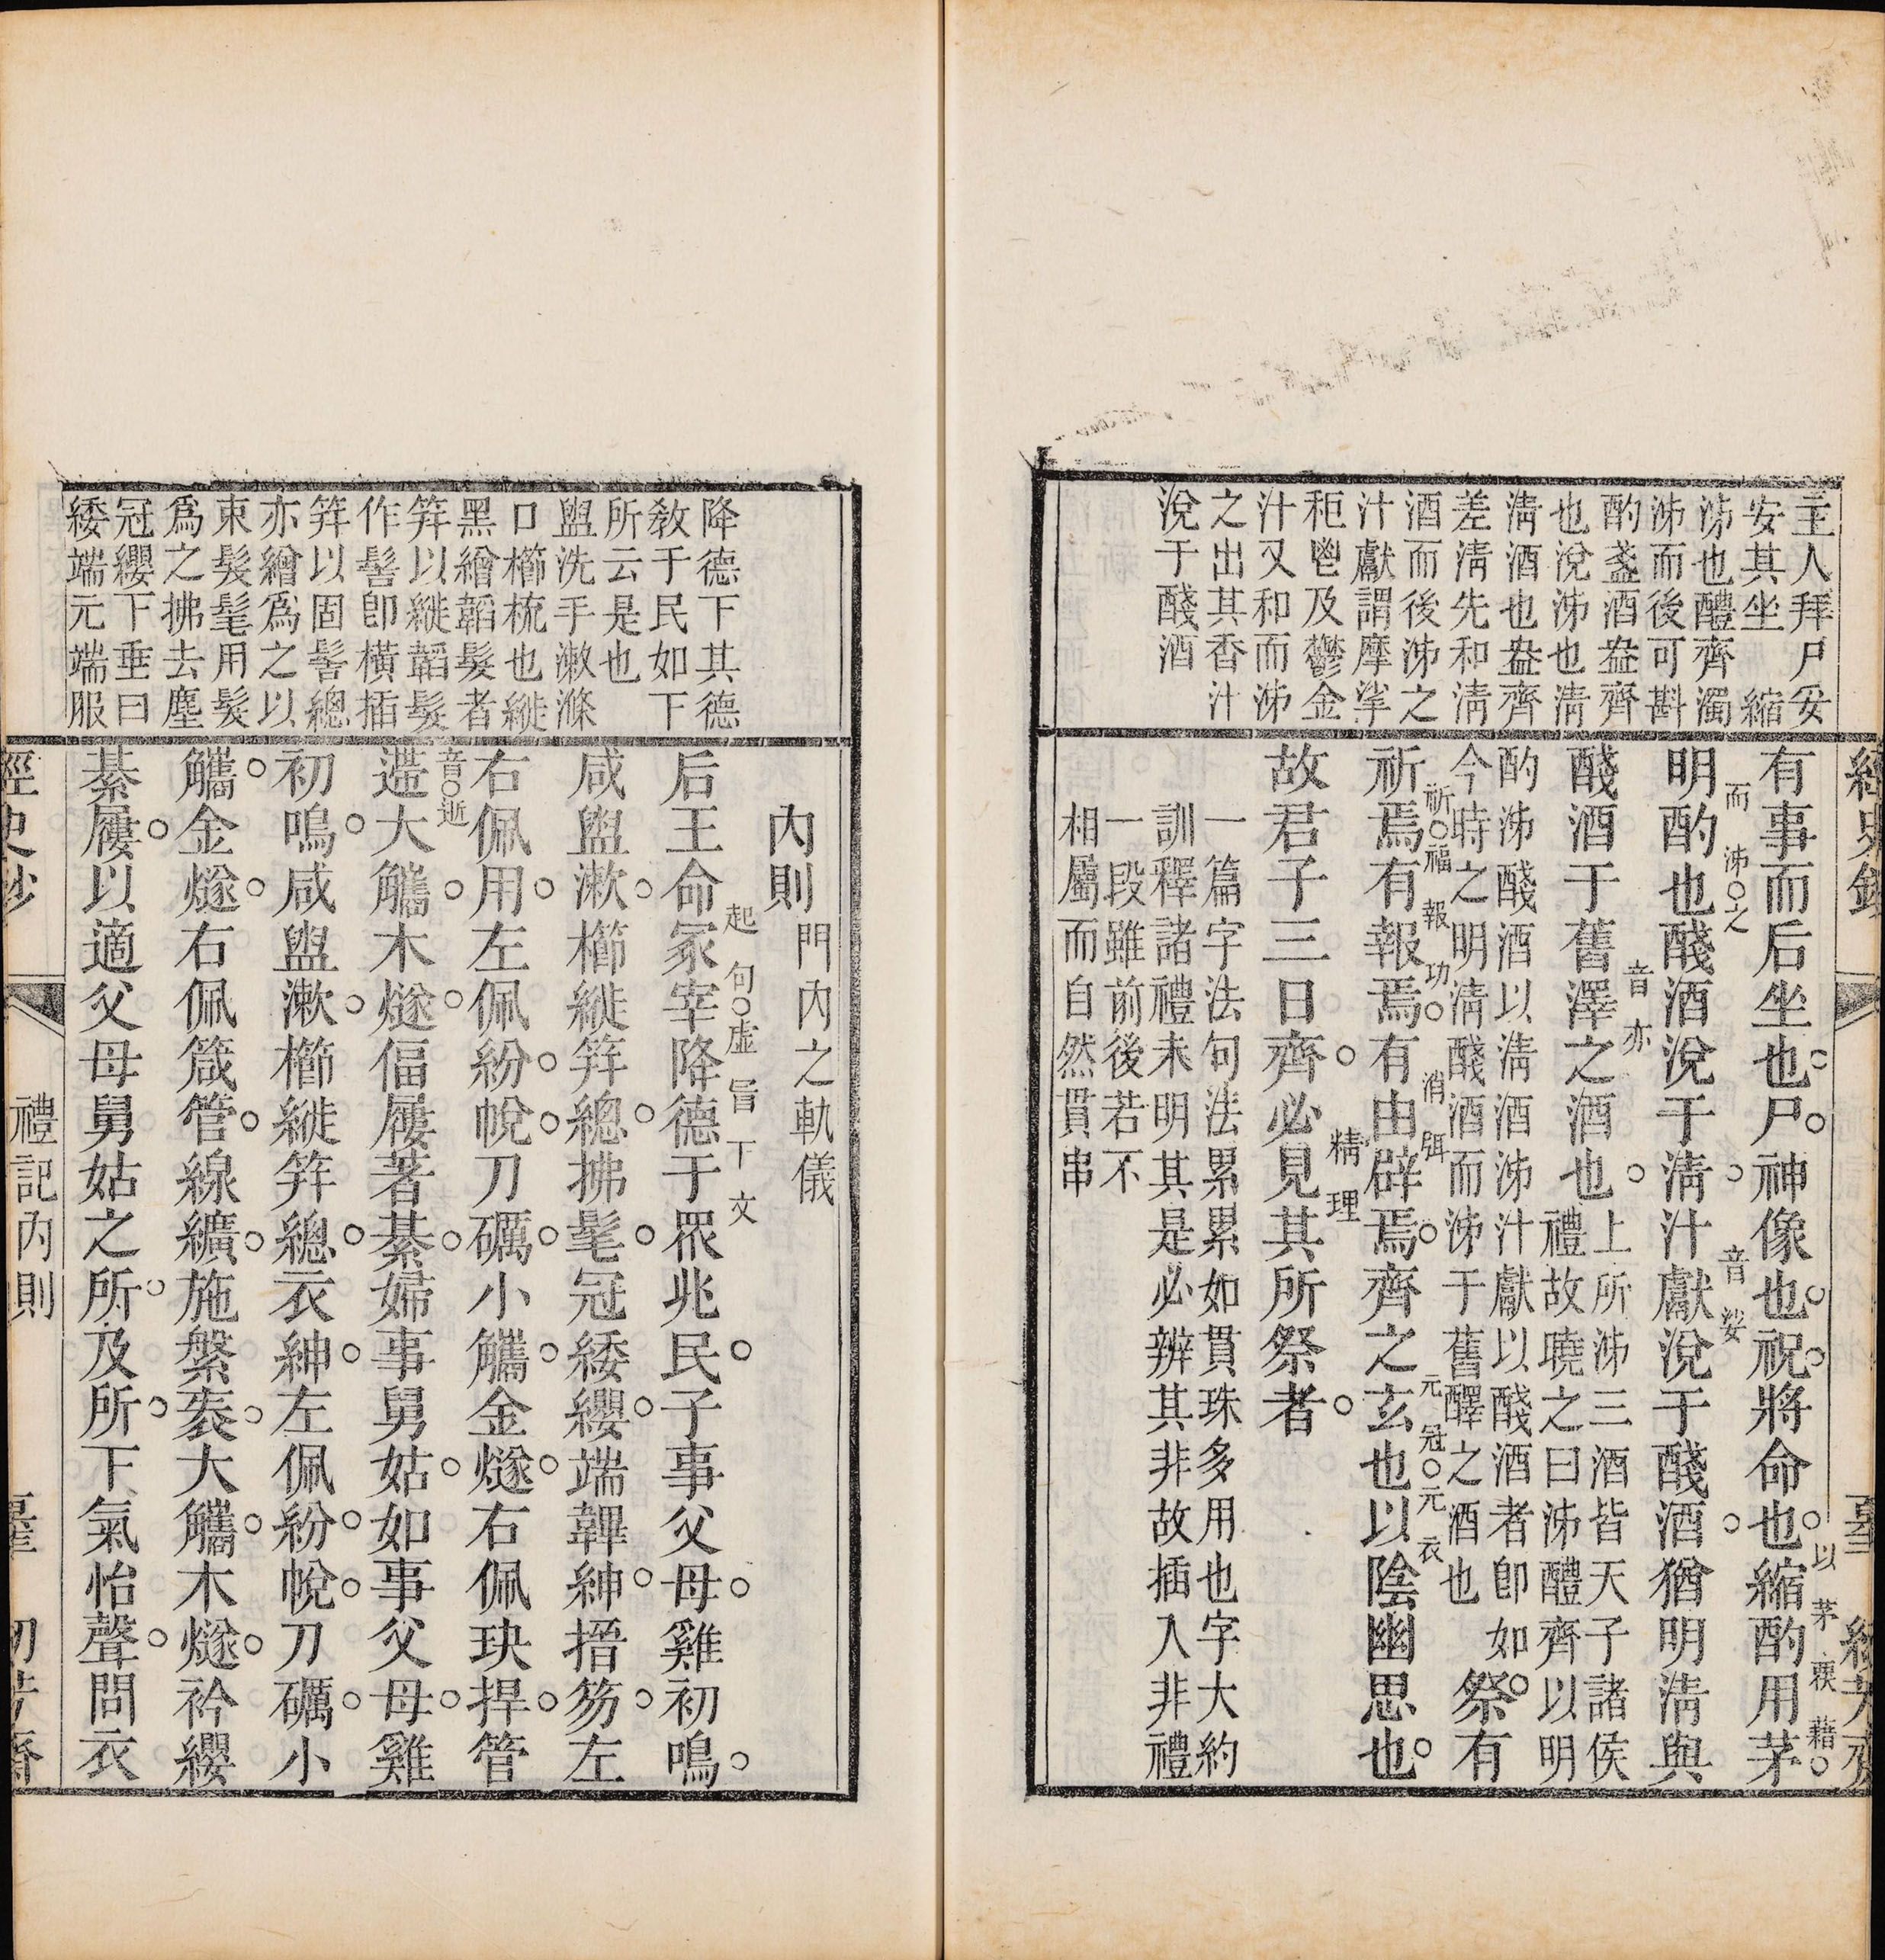 主人拜尸妥
安其坐　縮
泲也醴齊濁
泲而後可斟
酌盞酒盎齊
也涗泲也淸
淸酒也盎齊
差淸先和淸
酒而後泲之
汁獻謂摩挲
秬鬯及鬱金
汁又和而泲
之出其香汁
涗于醆酒
有事而后坐也尸神像也祝將命也縮酌用茅
以茅藉
明酌也醆酒涗于淸汁獻涗于醆酒猶明淸與
而泲之　音娑
醆酒于舊澤之酒也
音亦
上所泲三酒皆天子諸侯
禮故曉之曰泲醴齊以明
酌泲醆酒以淸酒泲汁獻以醆酒者卽如
今時之明淸醆酒而泲于舊醳之酒也
祭有
祈焉有報焉有由辟焉齊之玄也以陰幽思也
祈福　報功　消弭　元冠元衣
故君子三日齊必見其所祭者
精理
一篇字法句法累累如貫珠多用也字大約
訓釋諸禮未明其是必辨其非故插入非禮
一段雖前後若不
相屬而自然貫串
降德下其德
敎于民如下
所云是也
盥洗手漱滌
口櫛梳也縰
黑繒韜髮者
笄以縰韜髮
作髻卽橫插
笄以固髻總
亦繒爲之以
束髮髦用髮
爲之拂去塵
冠纓下垂曰
緌端元端服
內則
門內之軌儀
后王命冢宰降德于眾兆民子事父母雞初鳴
起句虛旨下文
咸盥漱櫛縰笄總拂髦冠緌纓端韠紳搢笏左
右佩用左佩紛帨刀礪小觿金燧右佩玦捍管
遰大觿木燧偪屨著綦婦事舅姑如事父母雞
音逝
初鳴咸盥漱櫛縰笄總衣紳左佩紛帨刀礪小
觿金燧右佩箴管線纊施縏袠大觿木燧衿纓
綦屨以適父母舅姑之所及所下氣怡聲問衣
經史鈔
禮記內則